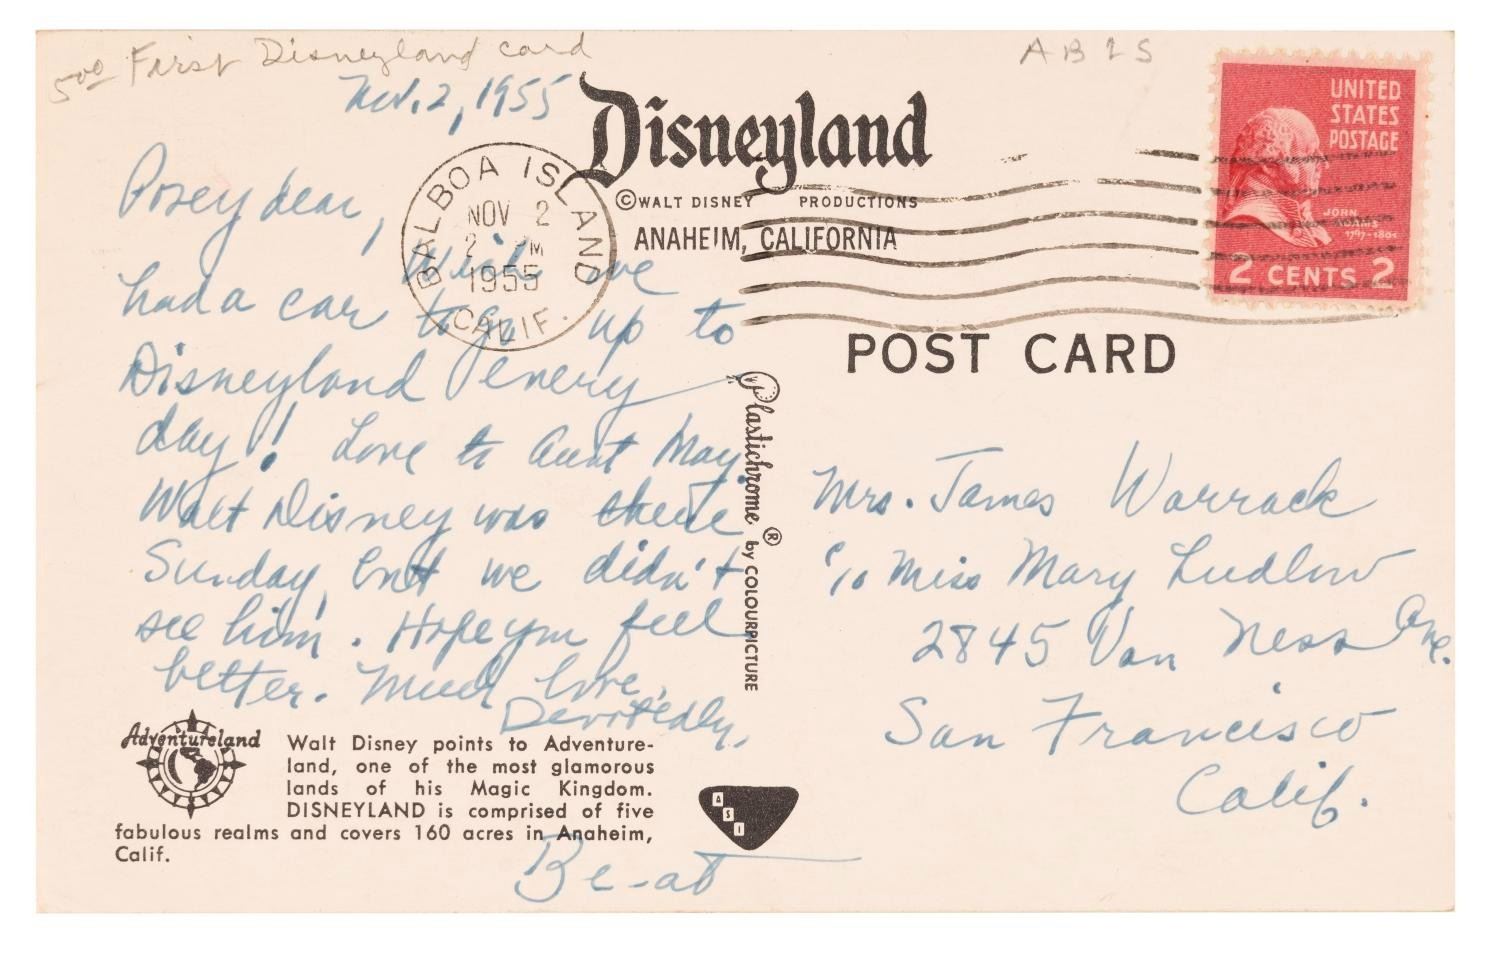 5.00 First Disneyland card
A B I S
Nov. 2, 1955
Disneyland
© WALT DISNEY PRODUCTIONS
ANAHEIM, CALIFORNIA
BALBOA ISLAND
NOV 2
2 M
1955
CALIF.
UNITED
STATES
POSTAGE
JOHN
ADAMS
1797-1801
2 CENTS 2
POST CARD
Posey dear,
Wish we
had a car to go up to
Disneyland every
day! Love to Aunt May.
Walt Disney was there
Sunday, but we didn't
see him. Hope you feel
better. Much love,
Devotedly,
Be-at
Plastichrome ® by COLOURPICTURE
Mrs. James Warrack
c/o Miss Mary Ludlow
2845 Van Ness Ave.
San Francisco
Calif.
Adventureland
Walt Disney points to Adventure-
land, one of the most glamorous
lands of his Magic Kingdom.
DISNEYLAND is comprised of five
fabulous realms and covers 160 acres in Anaheim,
Calif.
A
S
I